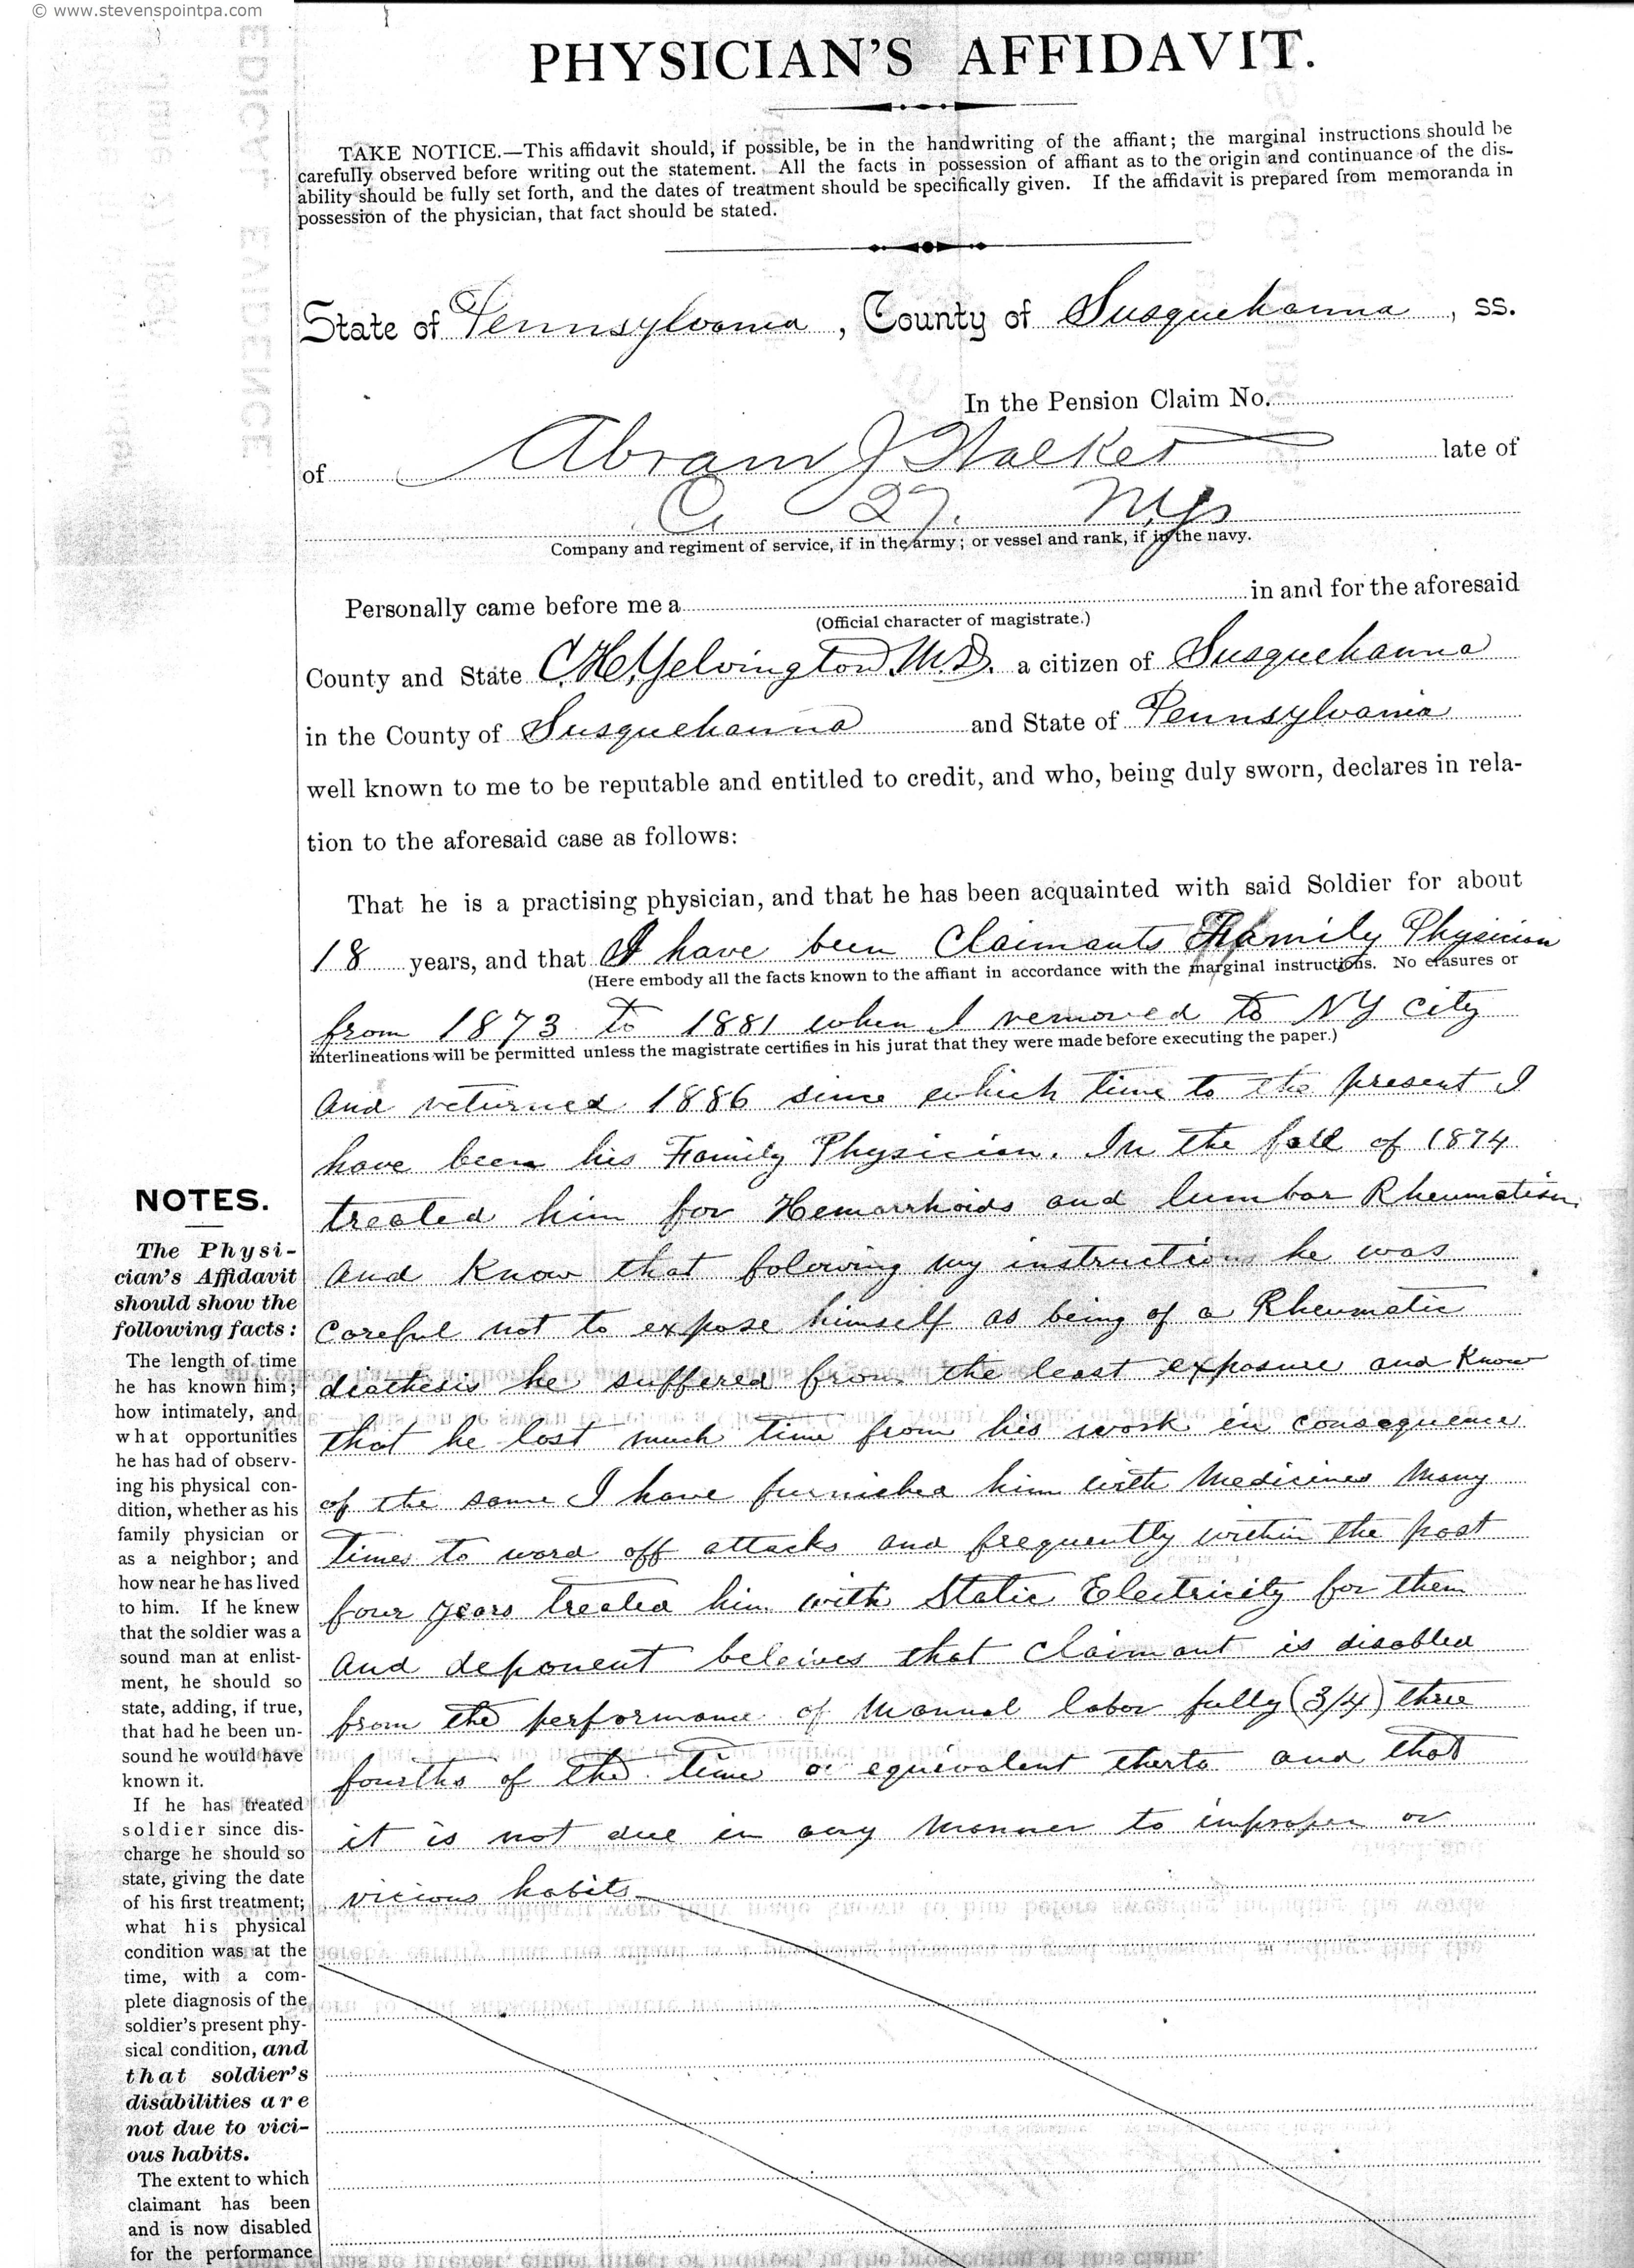 © www.stevenspointpa.com
PHYSICIAN'S AFFIDAVIT.
TAKE NOTICE.—This affidavit should, if possible, be in the handwriting of the affiant; the marginal instructions should be
carefully observed before writing out the statement. All the facts in possession of affiant as to the origin and continuance of the dis-
ability should be fully set forth, and the dates of treatment should be specifically given. If the affidavit is prepared from memoranda in
possession of the physician, that fact should be stated.
State of Pennsylvania, County of Susquehanna, ss.
In the Pension Claim No.
of Abram J Walker late of
C 27. N.Y.
Company and regiment of service, if in the army; or vessel and rank, if in the navy.
Personally came before me a in and for the aforesaid
(Official character of magistrate.)
County and State C.H. Yelvington M.D. a citizen of Susquehanna
in the County of Susquehanna and State of Pennsylvania
well known to me to be reputable and entitled to credit, and who, being duly sworn, declares in rela-
tion to the aforesaid case as follows:
That he is a practising physician, and that he has been acquainted with said Soldier for about
18 years, and that I have been Claimants Family Physician
(Here embody all the facts known to the affiant in accordance with the marginal instructions. No erasures or
from 1873 to 1881 when I removed to NY City
interlineations will be permitted unless the magistrate certifies in his jurat that they were made before executing the paper.)
and returned 1886 since which time to the present I
have been his Family Physician. In the fall of 1874
treated him for Hemorrhoids and lumbar Rheumatism.
and Know that folowing my instructions he was
careful not to expose himself as being of a Rheumatic
diathesis he suffered from the least exposure and Know
that he lost much time from his work in consequence
of the same I have furnished him with Medicines Many
times to ward off attacks and frequently within the past
four years treated him with Static Electricity for them
and deponent beleives that Claimant is disabled
from the performance of Manual labor fully (3/4) three
fourths of the time or equivalent therto and that
it is not due in any Manner to improper or
vicious habits
NOTES.
The Physi-
cian's Affidavit
should show the
following facts:
The length of time
he has known him;
how intimately, and
what opportunities
he has had of observ-
ing his physical con-
dition, whether as his
family physician or
as a neighbor; and
how near he has lived
to him. If he knew
that the soldier was a
sound man at enlist-
ment, he should so
state, adding, if true,
that had he been un-
sound he would have
known it.
If he has treated
soldier since dis-
charge he should so
state, giving the date
of his first treatment;
what his physical
condition was at the
time, with a com-
plete diagnosis of the
soldier's present phy-
sical condition, and
that soldier's
disabilities are
not due to vici-
ous habits.
The extent to which
claimant has been
and is now disabled
for the performance